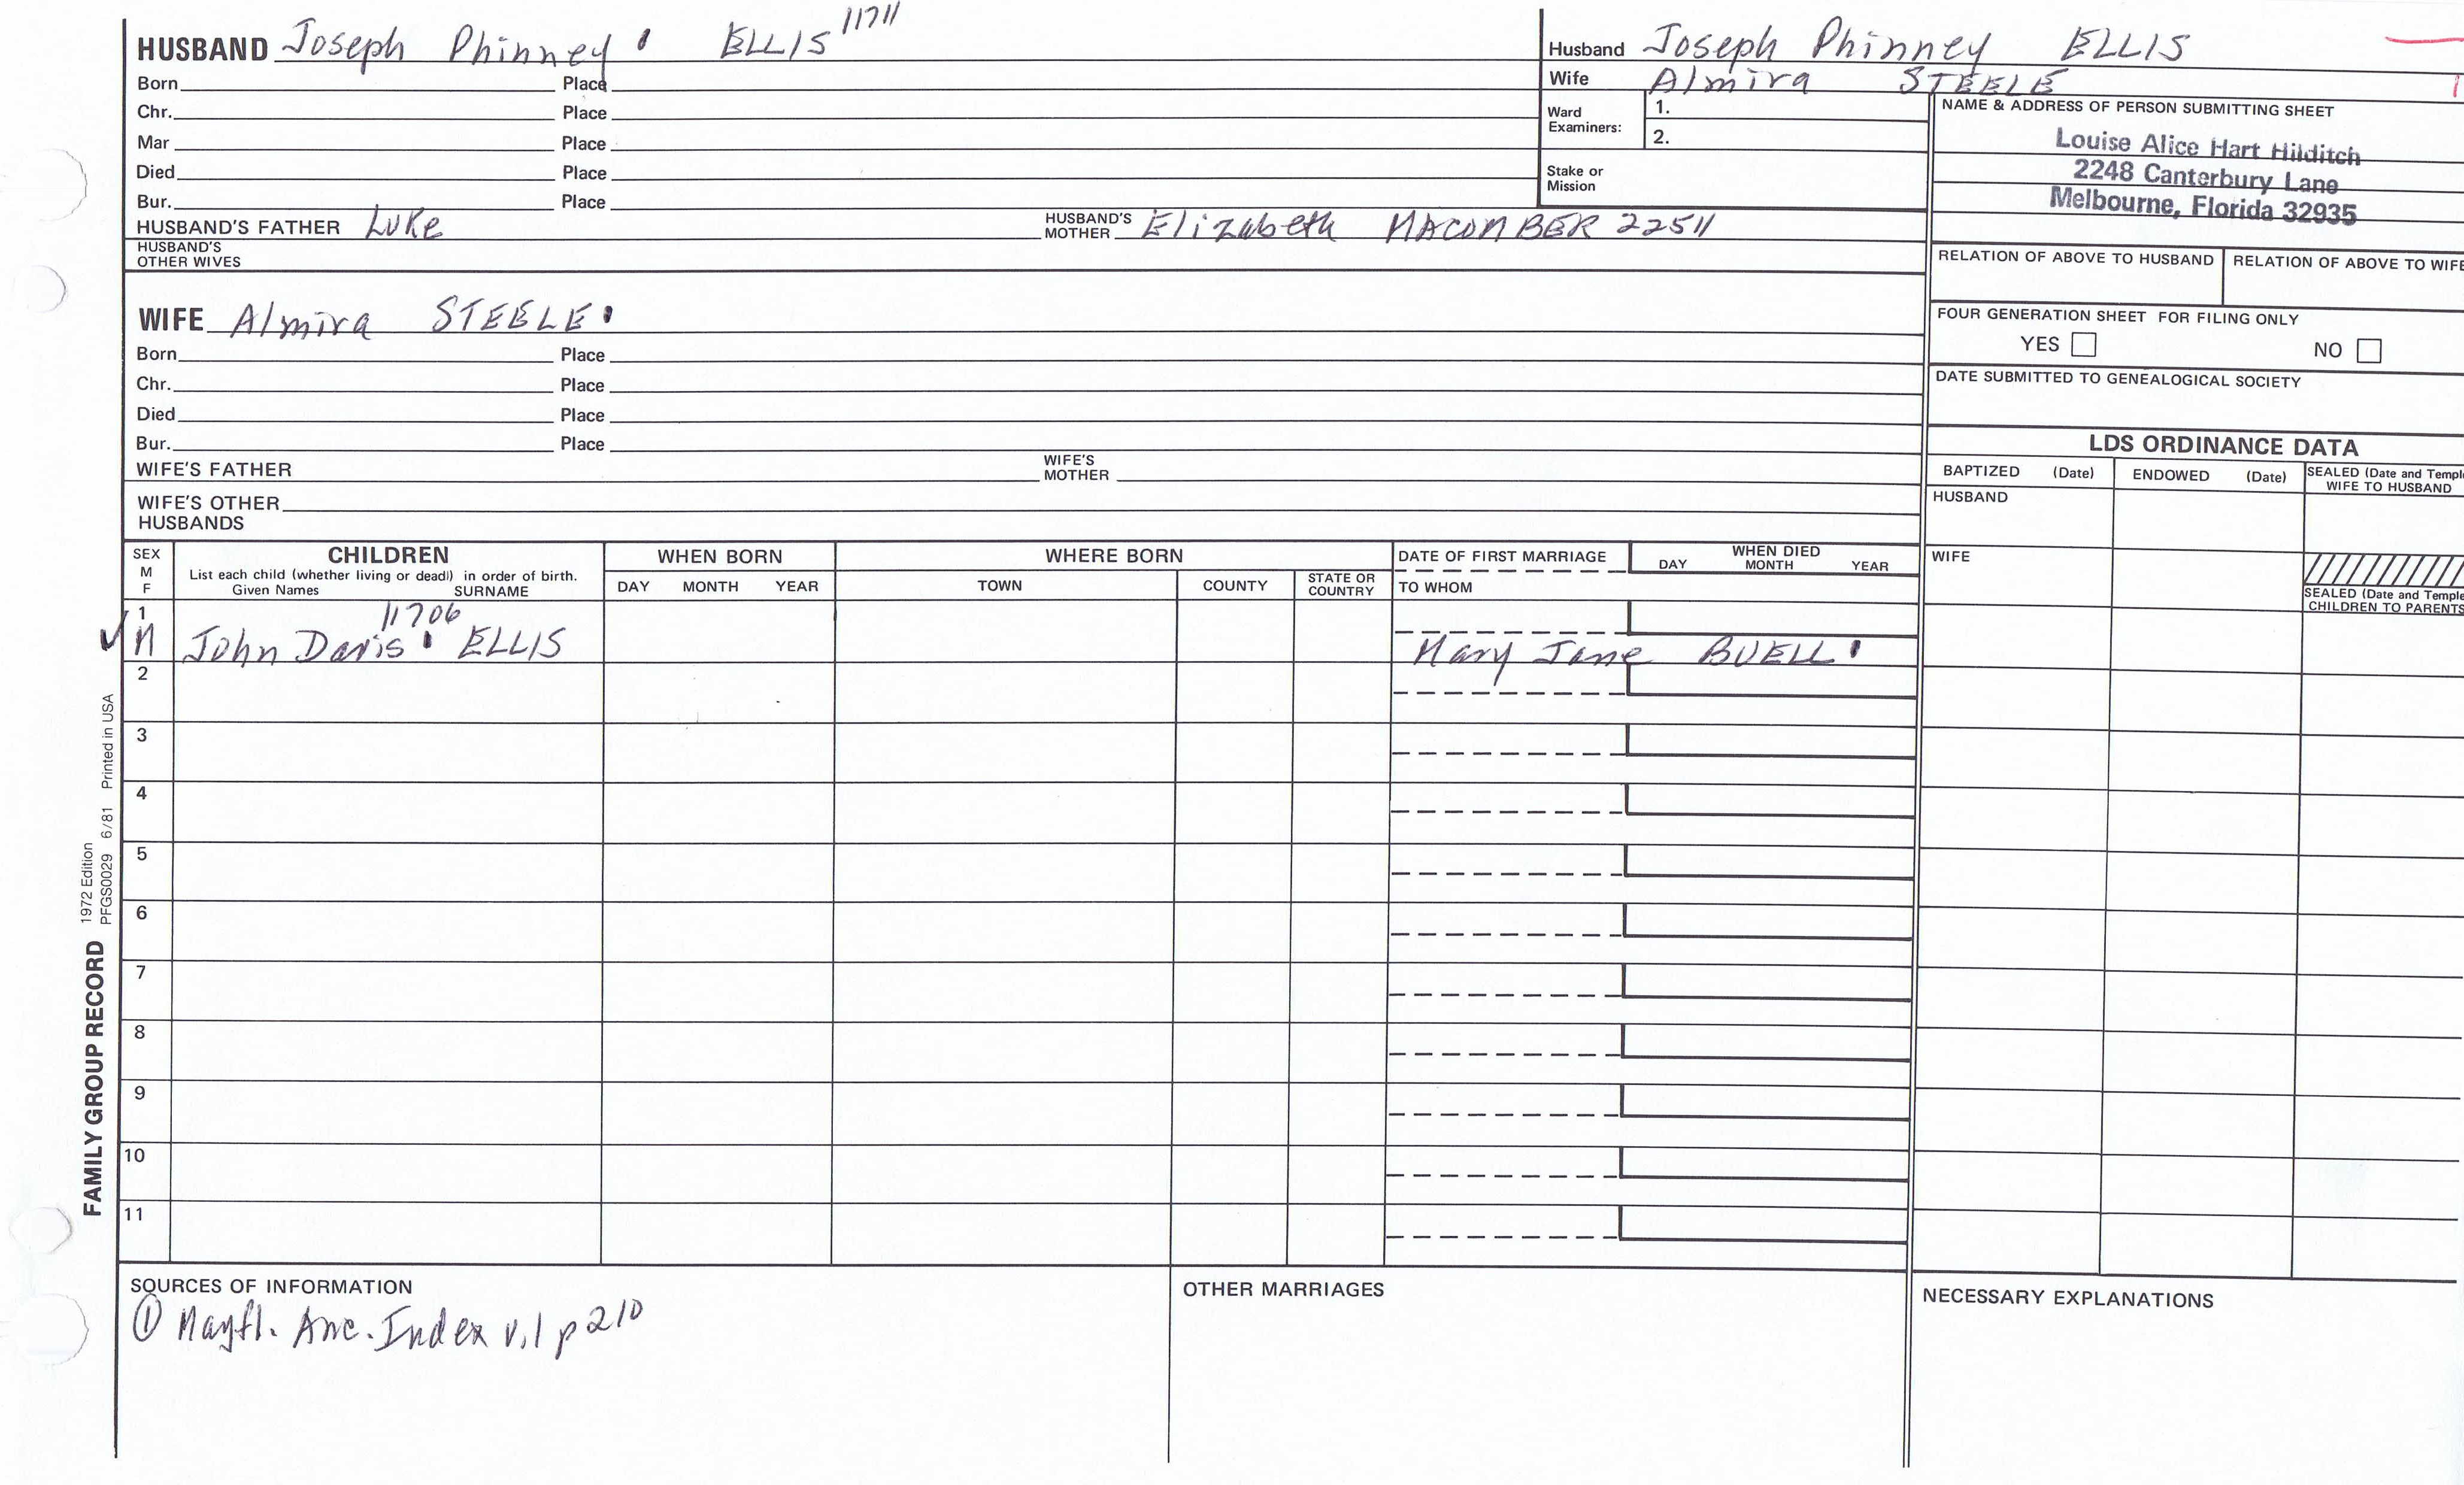 HUSBAND Joseph Phinney ' ELLIS 11711
Born Place
Chr. Place
Mar Place
Died Place
Bur. Place
HUSBAND'S FATHER Luke HUSBAND'S MOTHER Elizabeth MACOMBER 22511
HUSBAND'S OTHER WIVES
Husband Joseph Phinney ELLIS
Wife Almira STEELE
Ward Examiners: 1.
2.
Stake or Mission
NAME & ADDRESS OF PERSON SUBMITTING SHEET
Louise Alice Hart Hilditch
2248 Canterbury Lane
Melbourne, Florida 32935
RELATION OF ABOVE TO HUSBAND RELATION OF ABOVE TO WIFE
FOUR GENERATION SHEET FOR FILING ONLY
YES NO
DATE SUBMITTED TO GENEALOGICAL SOCIETY
WIFE Almira STEELE '
Born Place
Chr. Place
Died Place
Bur. Place
WIFE'S FATHER WIFE'S MOTHER
WIFE'S OTHER HUSBANDS
LDS ORDINANCE DATA
BAPTIZED (Date) ENDOWED (Date) SEALED (Date and Temple) WIFE TO HUSBAND
HUSBAND
WIFE
SEALED (Date and Temple) CHILDREN TO PARENTS
SEX M F
CHILDREN
List each child (whether living or dead) in order of birth.
Given Names SURNAME
WHEN BORN
DAY MONTH YEAR
WHERE BORN
TOWN COUNTY STATE OR COUNTRY
DATE OF FIRST MARRIAGE
TO WHOM
WHEN DIED
DAY MONTH YEAR
1 11706
✓ M John Davis ' ELLIS Mary Jane BUELL '
2
3
4
5
6
7
8
9
10
11
SOURCES OF INFORMATION
① Mayfl. Anc. Index v.1 p210
OTHER MARRIAGES
NECESSARY EXPLANATIONS
FAMILY GROUP RECORD
1972 Edition
PFGS0029 6/81 Printed in USA